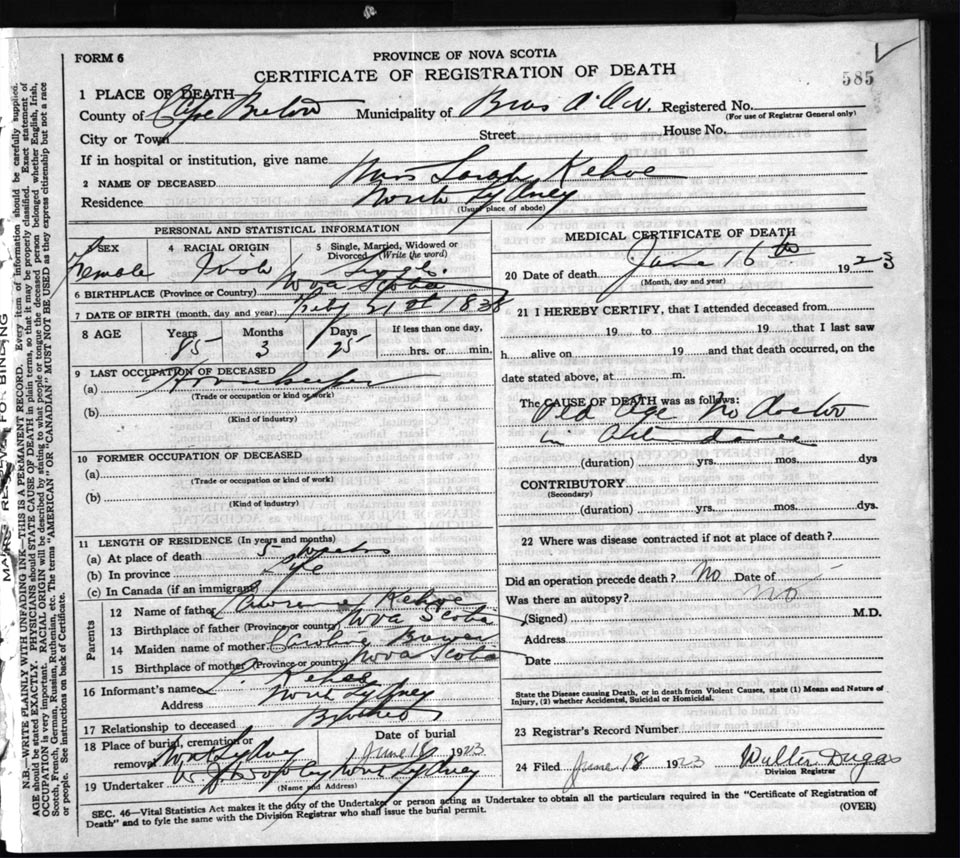 FORM 6
PROVINCE OF NOVA SCOTIA
CERTIFICATE OF REGISTRATION OF DEATH
585
1 PLACE OF DEATH
County of Cape Breton Municipality of Bras d'Or. Registered No.
(For use of Registrar General only)
City or Town Street House No.
If in hospital or institution, give name
2 NAME OF DECEASED Mrs Sarah Kehoe
Residence North Sydney
(Usual place of abode)
PERSONAL AND STATISTICAL INFORMATION
SEX 4 RACIAL ORIGIN 5 Single, Married, Widowed or Divorced (Write the word)
Female Irish Single.
6 BIRTHPLACE (Province or Country) Nova Scotia
7 DATE OF BIRTH (month, day and year) Feby 21st 1838
8 AGE Years Months Days If less than one day,
85 3 25 hrs. or min.
9 LAST OCCUPATION OF DECEASED
(a) Housekeeper
(Trade or occupation or kind or work)
(b)
(Kind of industry)
10 FORMER OCCUPATION OF DECEASED
(a)
(Trade or occupation or kind of work)
(b)
(Kind of industry)
11 LENGTH OF RESIDENCE (In years and months)
(a) At place of death 5 weeks
(b) In province Life
(c) In Canada (if an immigrant)
Parents
12 Name of father Lawrence Kehoe
13 Birthplace of father (Province or country) Nova Scotia
14 Maiden name of mother Caroline
15 Birthplace of mother (Province or country) Nova Scotia
16 Informant's name L. Kehoe
Address North Sydney
17 Relationship to deceased Brother
18 Place of burial, cremation or removal Date of burial
North Sydney June 18 1923
19 Undertaker North Sydney
(Name and Address)
MEDICAL CERTIFICATE OF DEATH
20 Date of death June 16th 1923
(Month, day and year)
21 I HEREBY CERTIFY, that I attended deceased from
19 to 19 that I last saw
h alive on 19 and that death occurred, on the
date stated above, at m.
The CAUSE OF DEATH was as follows:
Old Age No Doctor
in Attendance
(duration) yrs. mos. dys
CONTRIBUTORY
(Secondary)
(duration) yrs. mos. dys.
22 Where was disease contracted if not at place of death?
Did an operation precede death? No Date of
Was there an autopsy? No
(Signed) M.D.
Address
Date
State the Disease causing Death, or in death from Violent Causes, state (1) Means and Nature of
Injury, (2) whether Accidental, Suicidal or Homicidal.
23 Registrar's Record Number
24 Filed June 18 1923 Walter Dugas
Division Registrar
SEC. 46—Vital Statistics Act makes it the duty of the Undertaker or person acting as Undertaker to obtain all the particulars required in the "Certificate of Registration of
Death" and to fyle the same with the Division Registrar who shall issue the burial permit.
(OVER)
N.B.—WRITE PLAINLY WITH UNFADING INK—THIS IS A PERMANENT RECORD. Every item of information should be carefully supplied.
AGE should be stated EXACTLY. PHYSICIANS should STATE CAUSE OF DEATH in plain terms, so that it may be properly classified. Exact statement of
OCCUPATION is very important. RACIAL ORIGIN will be described by stating to what people or tongue the deceased person belonged whether English, Irish,
Scotch, French, German, Russian, Ruthenian, etc. The terms "AMERICAN" OR "CANADIAN" MUST NOT BE USED as they express citizenship but not a race
or people. See instructions on back of Certificate.